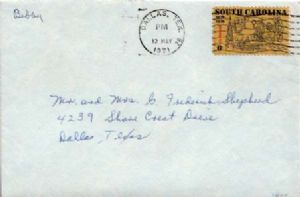 Bobby
DALLAS, TEX.
PM
12 MAY
1971
SOUTH CAROLINA
6
Mr. and Mrs. C Frederick Shepherd
4239 Shore Crest Drive
Dallas, Texas